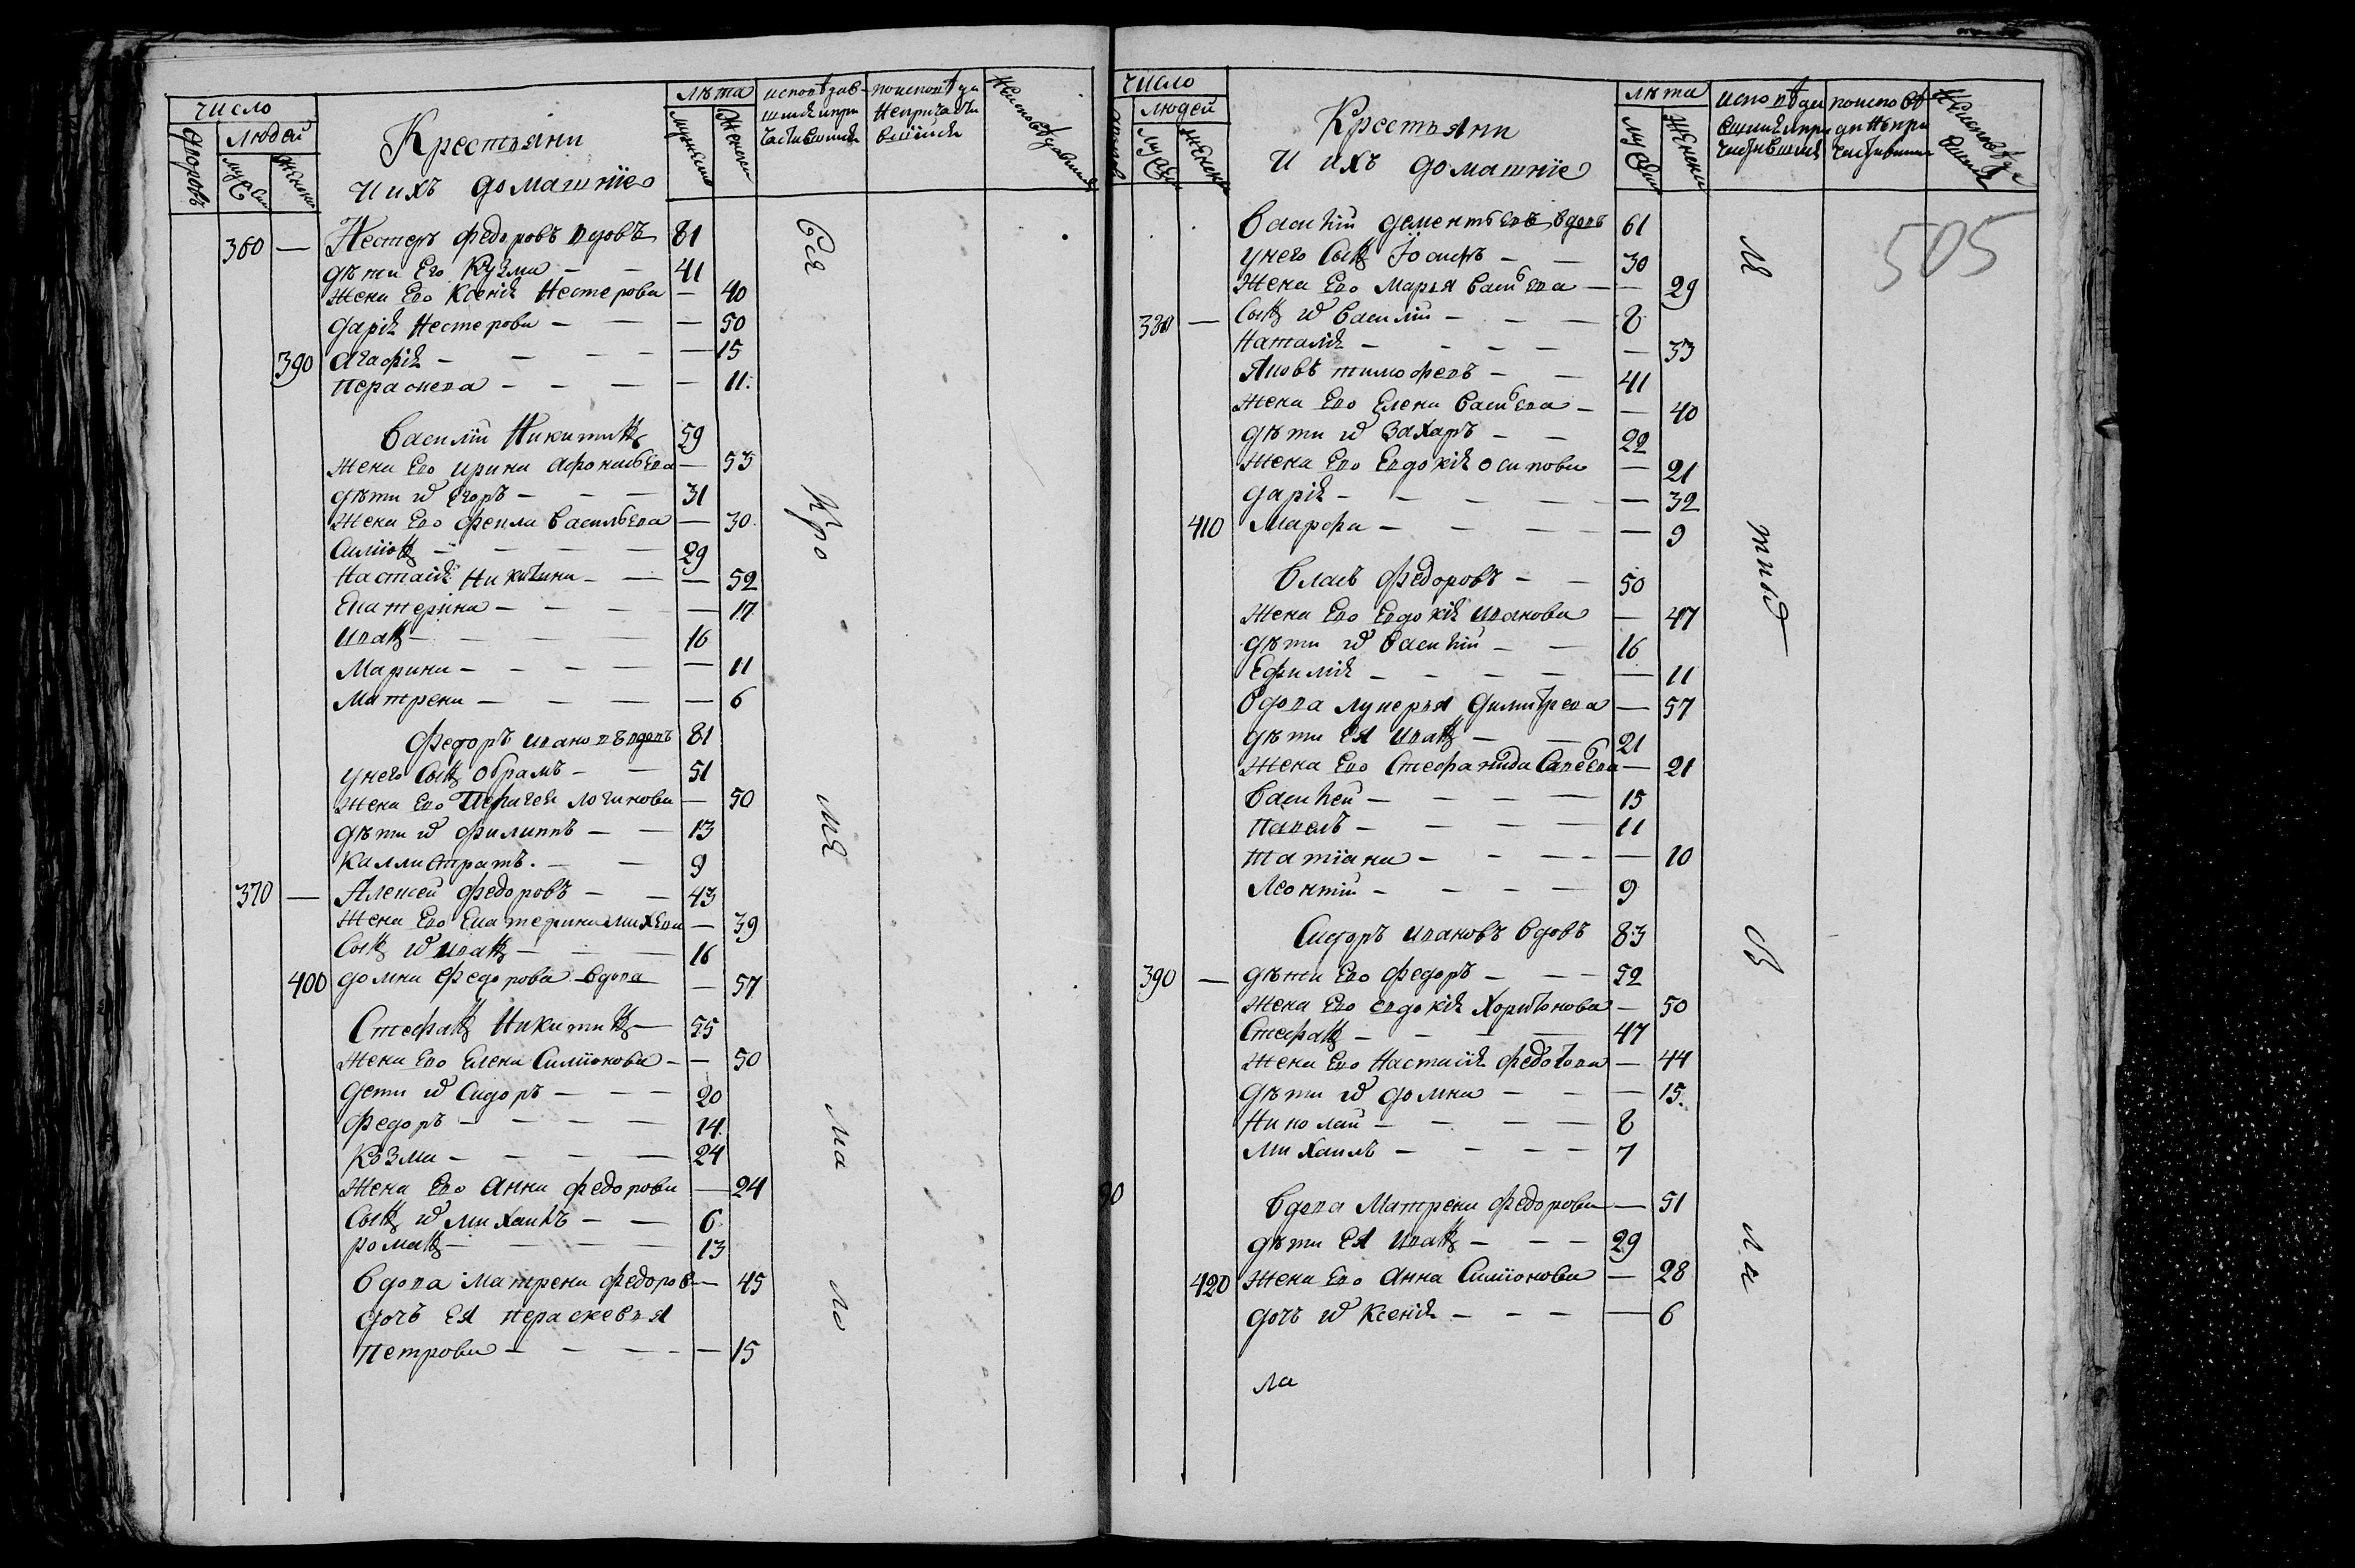 число
людей
дворовъ
мужеск
женски
Крестьяни
и ихъ домашніе
лѣта
мужеска
женски
исповѣдав-
шися и при
частившися
по исповѣди
непричасти
вшіися
неисповѣдавшіяся
360 — Нестеръ Федоровъ вдовъ 81
дѣти Его Кузма — — 41
жена Его Ксенія Нестерова — 40
дарія Нестерова — — — 50
390 агафія — — — — — 15
пераскева — — — — 11.
Василій Никитинъ 59
жена Его ирина афонасьева — 53
дѣти w егоръ — — — 31
жена Его фекла васильева — 30.
Симіонъ — — — — 29
Настасія Никитина — — — 52
Екатерина — — — — 17
иванъ — — — — 16
Марина — — — — — 11
Матрена — — — — 6
Федоръ ивановъ вдовъ 81
унего Сынъ Обрамъ — — 51
жена Его Пелагея логинова — 50
дѣти w филиппъ — — 13
Каллистратъ. — — 9
370 — Алексей Федоровъ — — 43
жена Его Екатерина михева — 39
Сынъ w иванъ — — — 16
400 домна Федорова вдова — 57
Стефанъ Никитинъ — 55
жена Его Елена Симіонова — — 50
дети w Сидоръ — — — 20
Федоръ — — — — 14.
Козма — — — — 24
жена Его Анна федорова — 24
Сынъ w михаилъ — — 6.
романъ — — — — 13
Вдова Матрена федоров — 45
дочь Ея пераскевья
Петрова — — — — — 15
Вся
Кро
мя
ма
ло
число
людей
мужеск
женски
Крестьяни
и ихъ домашніе
лѣта
мужеск
женски
исповѣда
вшияся и при
частившияся
по исповѣ
ди непри
частившияся
неисповѣда
вшияся
505
Василій дементьевъ вдовъ 61
унего Сынъ Іосифъ — — 30
жена Его Марья васильева — — 29
380 — Сынъ w василій — — — 8
Наталія — — — — — 33
Яковъ тимофевъ — — 41
жена Его Елена васильева — — 40
дѣти w Захаръ — — 22
жена Его Евдокія осипова — 21
дарія — — — — — 32
410 Марфа — — — — — 9
Власъ федоровъ — — 50
жена Его Евдокія иванова — 47
дѣти w василій — — 16
Ефимія — — — — — 11
Вдова лукерья димитрева — 57
дѣти Ея иванъ — — 21
жена Его Стефанида Савельева — 21
василей — — — — 15
павелъ — — — — 11
татіана — — — — — 10
леонтій — — — — 9
Сидоръ ивановъ вдовъ 83
390 — дѣти Его федоръ — — — 52
жена Его евдокія Харитонова — 50
Стефанъ — — — — 47
жена Его Настасія федотова — 44
дѣти w домна — — — 15.
Николай — — — — 8
михаилъ — — — — 7
Вдова Матрена федорова — 51
дѣти Ея иванъ — — — 29
420 жена Его Анна Симіонова — 28
дочь w Ксенія — — — — 6
ла